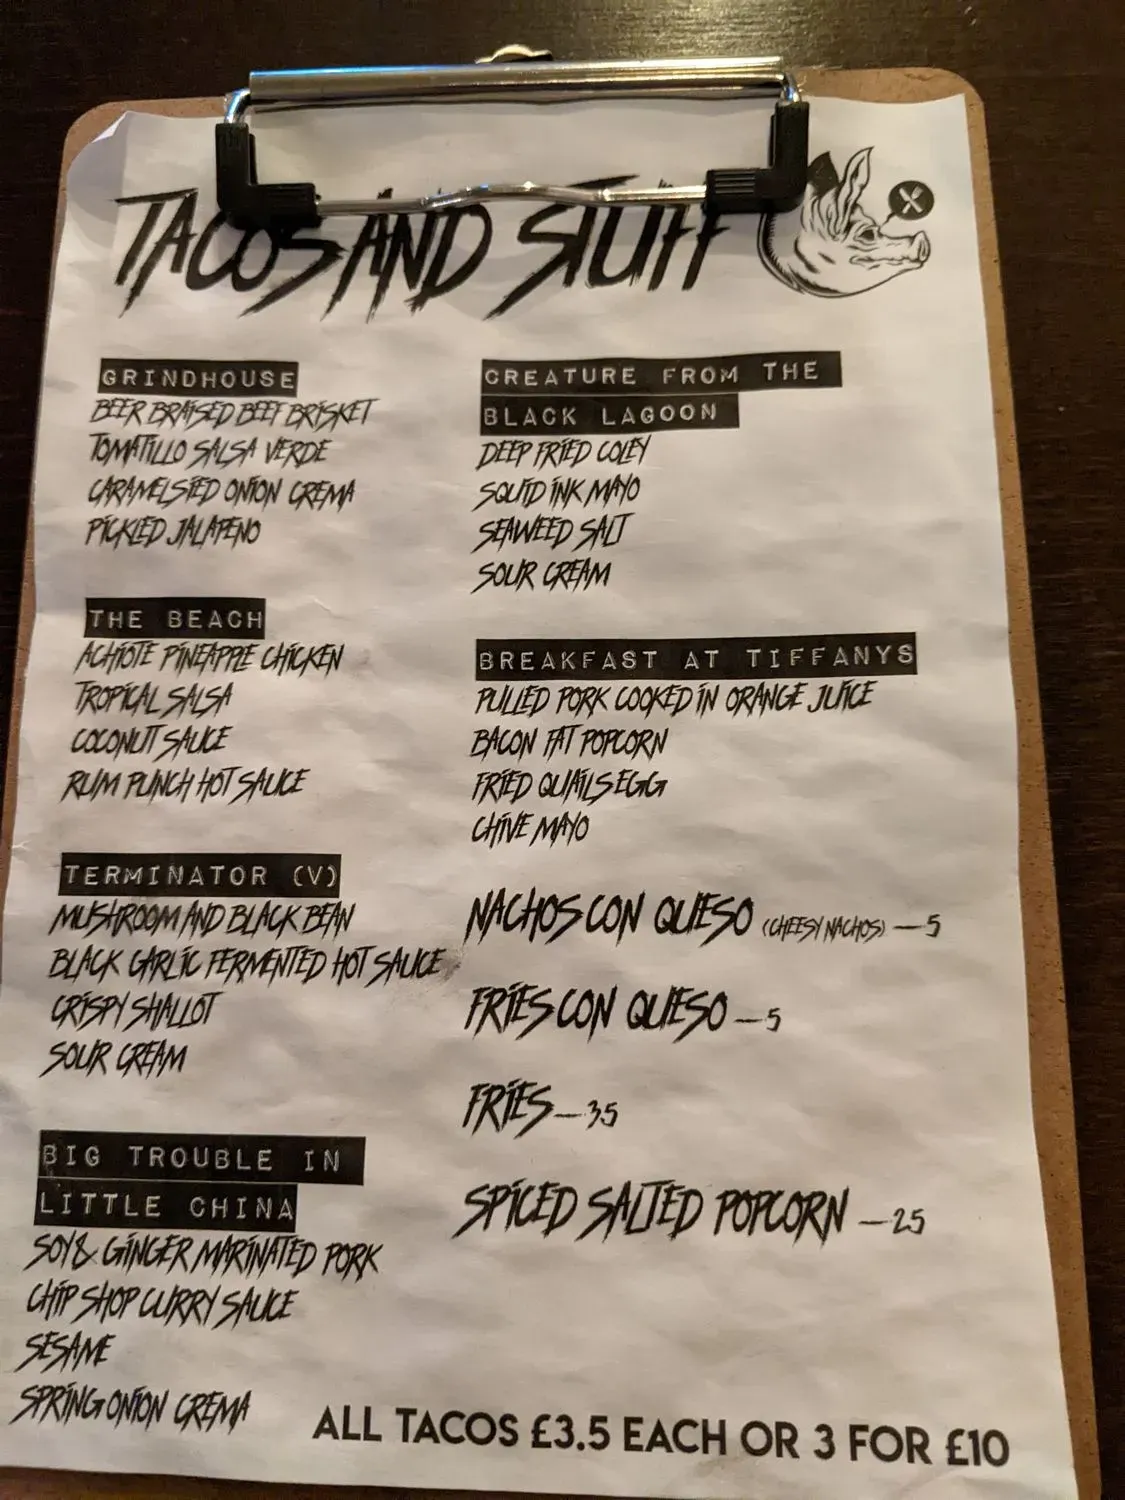 TACOS AND STUFF
GRINDHOUSE
BEER BRAISED BEEF BRISKET
TOMATILLO SALSA VERDE
CARAMELSIED ONION CREMA
PICKLED JALAPENO
THE BEACH
ACHIOTE PINEAPPLE CHICKEN
TROPICAL SALSA
COCONUT SAUCE
RUM PUNCH HOT SAUCE
TERMINATOR (V)
MUSHROOM AND BLACK BEAN
BLACK GARLIC FERMENTED HOT SAUCE
CRISPY SHALLOT
SOUR CREAM
BIG TROUBLE IN
LITTLE CHINA
SOY & GINGER MARINATED PORK
CHIP SHOP CURRY SAUCE
SESAME
SPRING ONION CREMA
CREATURE FROM THE
BLACK LAGOON
DEEP FRIED COLEY
SQUID INK MAYO
SEAWEED SALT
SOUR CREAM
BREAKFAST AT TIFFANYS
PULLED PORK COOKED IN ORANGE JUICE
BACON FAT POPCORN
FRIED QUAILS EGG
CHIVE MAYO
NACHOS CON QUESO (CHEESY NACHOS) — 5
FRIES CON QUESO — 5
FRIES — 3.5
SPICED SALTED POPCORN — 2.5
ALL TACOS £3.5 EACH OR 3 FOR £10